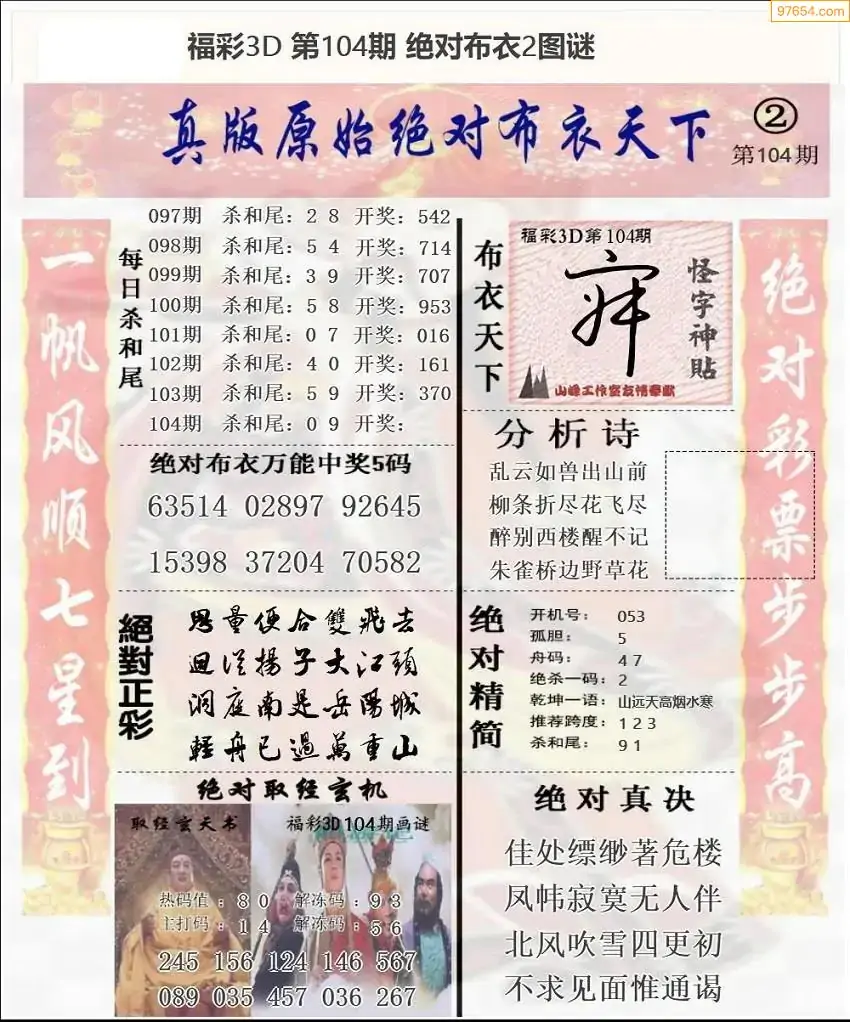 97654.com
福彩3D 第104期 绝对布衣2图谜
真版原始绝对布衣天下
②
第104期
一帆风顺七星到
每日杀和尾
097期 杀和尾：2 8 开奖：542
098期 杀和尾：5 4 开奖：714
099期 杀和尾：3 9 开奖：707
100期 杀和尾：5 8 开奖：953
101期 杀和尾：0 7 开奖：016
102期 杀和尾：4 0 开奖：161
103期 杀和尾：5 9 开奖：370
104期 杀和尾：0 9 开奖：
绝对布衣万能中奖5码
63514 02897 92645
15398 37204 70582
絕對正彩
思量便合雙飛去
迴從揚子大江頭
洞庭南是岳陽城
輕舟已過萬重山
绝对取经玄机
取经玄天书
福彩3D104期画谜
热码值：8 0 解冻码：9 3
主打码：1 4 解冻码：5 6
245 156 124 146 567
089 035 457 036 267
布衣天下
福彩3D第104期
怪字神贴
山峰工作室友情奉献
分析诗
乱云如兽出山前
柳条折尽花飞尽
醉别西楼醒不记
朱雀桥边野草花
绝对精简
开机号：053
孤胆：5
舟码：4 7
绝杀一码：2
乾坤一语：山远天高烟水寒
推荐跨度：1 2 3
杀和尾：9 1
绝对真决
佳处缥缈著危楼
凤帏寂寞无人伴
北风吹雪四更初
不求见面惟通谒
绝对彩票步步高